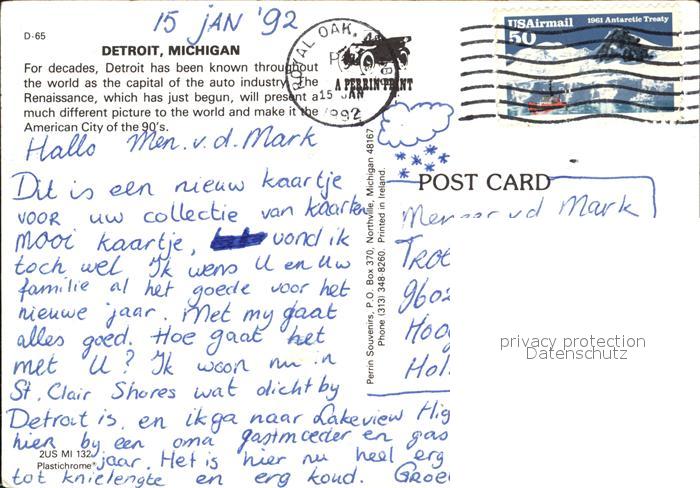 15 JAN '92
D-65
DETROIT, MICHIGAN
For decades, Detroit has been known throughout
the world as the capital of the auto industry. The
Renaissance, which has just begun, will present a
much different picture to the world and make it the
American City of the 90's.
ROYAL OAK,
15 JAN
1992
A PERRIN PRINT
USAirmail
50
1961 Antarctic Treaty
Hallo Men. v.d. Mark
Dit is een nieuw kaartje
voor uw collectie van kaarten
mooi kaartje, vond ik
toch wel Ik wens U en Uw
familie al het goede voor het
nieuwe jaar. Met my gaat
alles goed. Hoe gaat het
met U? Ik woon nu in
St. Clair Shores wat dicht by
Detroit is, en ik ga naar Lakeview Hig
hier by een oma gastmoeder en gas
jaar. Het is hier nu heel erg
tot knielengte en erg koud. Groe
2US MI 132
Plastichrome®
Perrin Souvenirs, P.O. Box 370, Northville, Michigan 48167
Phone (313) 348-8260. Printed in Ireland.
POST CARD
Meneer vd Mark
9602
Hoo
Hol
privacy protection
Datenschutz